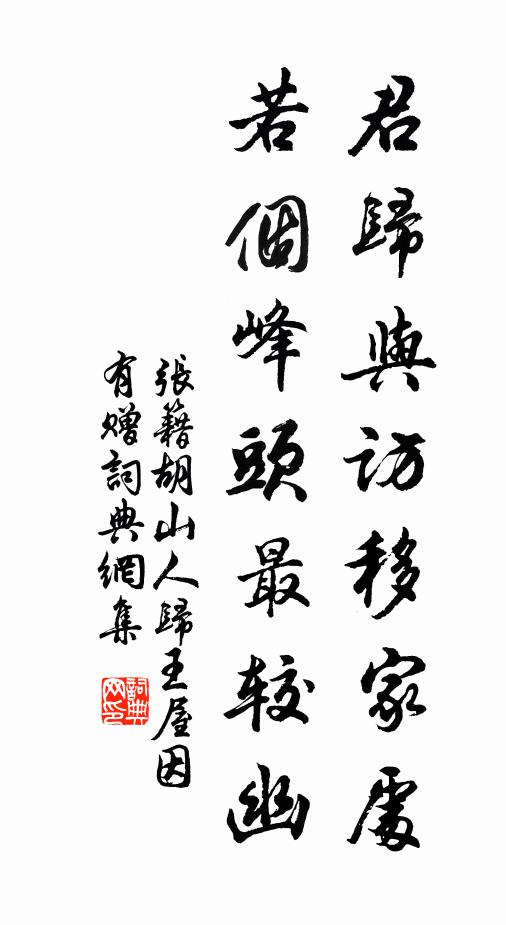 君歸與訪移家處
若個峰頭最較幽
張籍胡山人歸王屋因
有贈詞典網集
詞典
网印